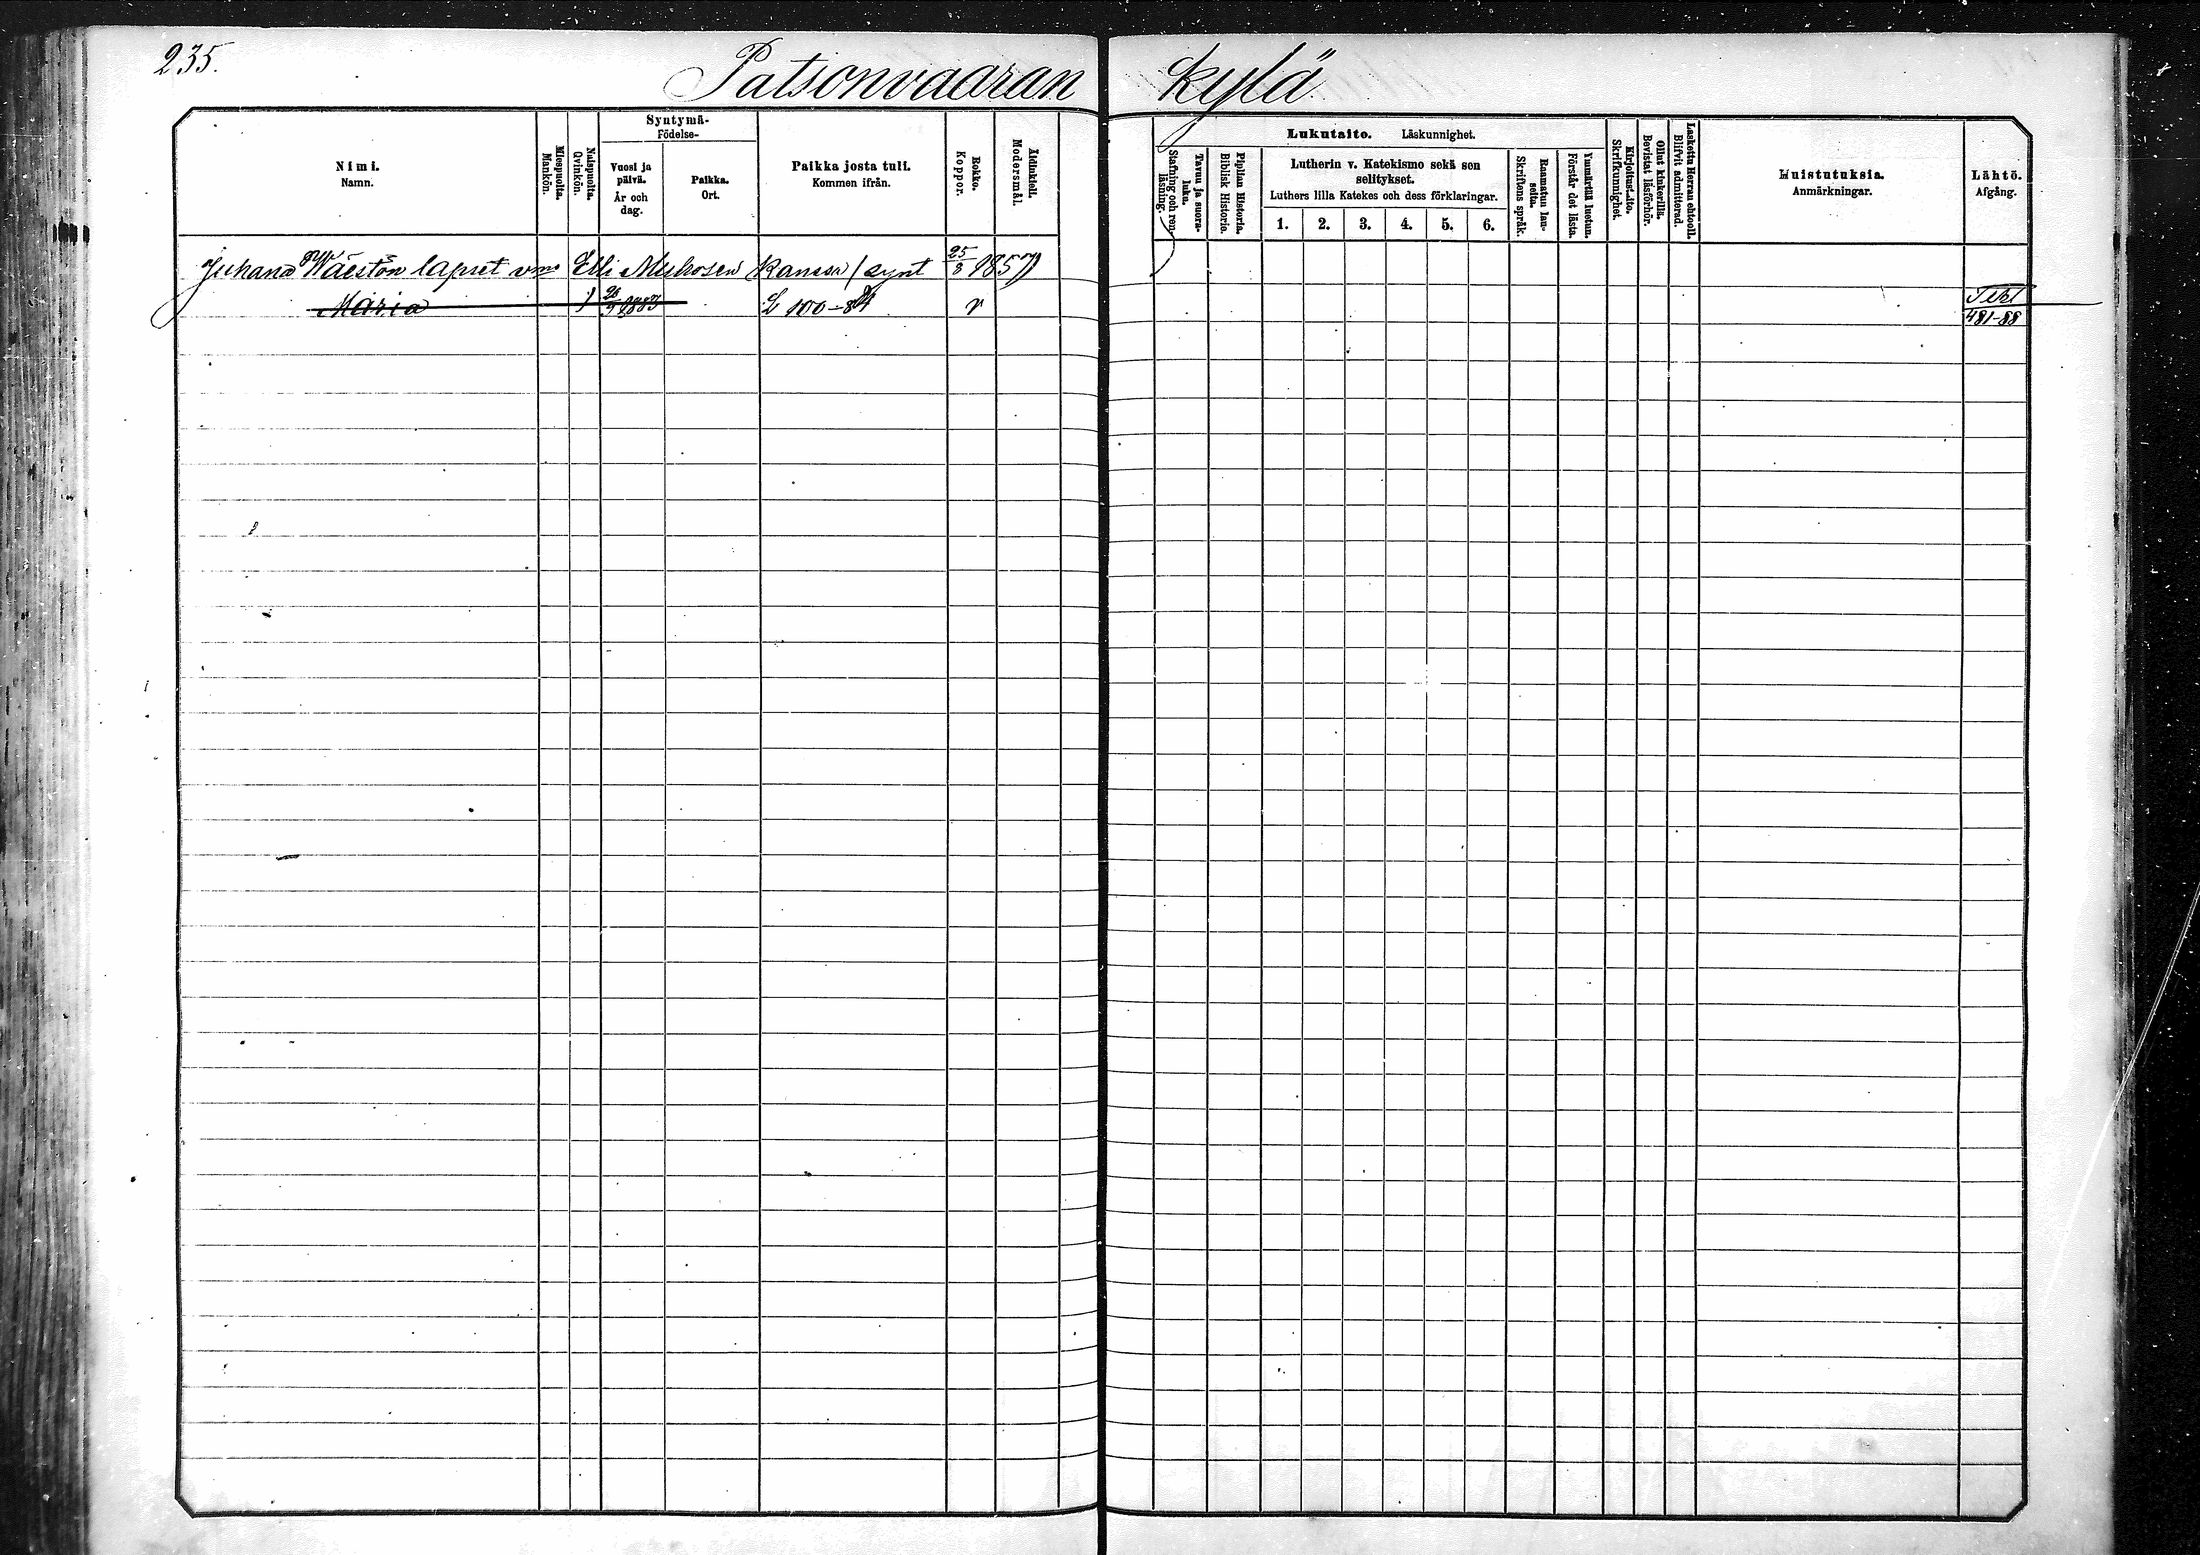 235.
Patsonvaaran kylä
Nimi.
Namn.
Miespuolta.
Mankön.
Naispuolta.
Qvinkön.
Syntymä-
Födelse-
Vuosi ja
päivä.
År och
dag.
Paikka.
Ort.
Paikka josta tuli.
Kommen ifrån.
Rokko.
Koppor.
Äidinkieli.
Modersmål.
Lukutaito. Läskunnighet.
Tavuu ja suora-
luku.
Stafning och ren
läsning.
Piplian Historia.
Biblisk Historie.
Lutherin v. Katekismo sekä sen
selitykset.
Luthers lilla Katekes och dess förklaringar.
1. 2. 3. 4. 5. 6.
Raamatun lau-
seita.
Skriftens språk.
Ymmärtää luetun.
Förstår det lästa.
Kirjoitustaito.
Skrifkunnighet.
Ollut kinkerillä.
Bevistat läsförhör.
Laskettu Herran ehtooll.
Blifvit admitterad.
Muistutuksia.
Anmärkningar.
Lähtö.
Afgång.
Juhana Wäestön lapset vmo Elli Muhosen kanssa / synt 25/8 1857)
Maria 1 1883 L 100-84 r
481-88